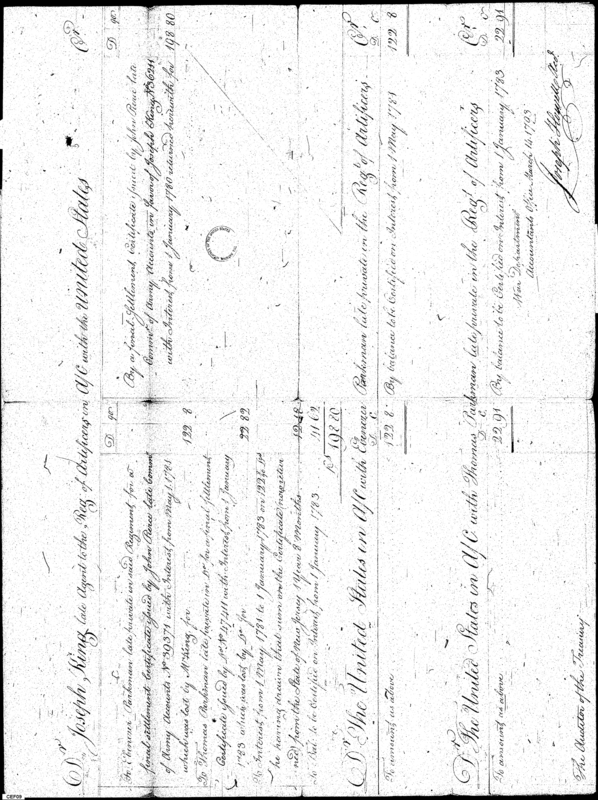 Dr Joseph King late Agent to the Reg of Artificers in A/C with the United States Cr
D 90
To Ebenezer Parkman late private in said Regiment for a
final settlement Certificate issued by John Pierce late Commr
of Army Accounts No 39371 with Interest from May 1. 1781
which was lost by Mr King for 122 8
To Thomas Parkman late private in Do for a final settlement
Certificate issued by Do No 47411 with Interest from 1 January
1783 which was lost by Do for 22 82
To Interest from 1 May 1781 to 1 January 1783 on 122 Do
he having drawn that sum on the Certificate
from the State of New Jersey 1 Year 8 Months 12 18
To Bal. to be Certified on Interest from 1 January 1783 41 62
Ds 198 80
D 90
By a final Settlement Certificate issued by John Pierce late
Commr of Army Accounts in favor of Joseph King
with Interest from 1 January 1780 returned herewith for 198 80
Dr The United States in A/C with Ebenezer Parkman late private in the Regt of Artificers Cr
D c
To amount as above 122 8
D c
By balance to be Certified on Interest from 1 May 1781 122 8
Dr The United States in A/C with Thomas Parkman late private in the Regt of Artificers Cr
D c
To amount as above 22 91
D c
By balance to be Certified on Interest from 1 January 1783 22 91
War Department
Accountants Office March 14 1793
Joseph Howell
The Auditor of the Treasury
CEF09